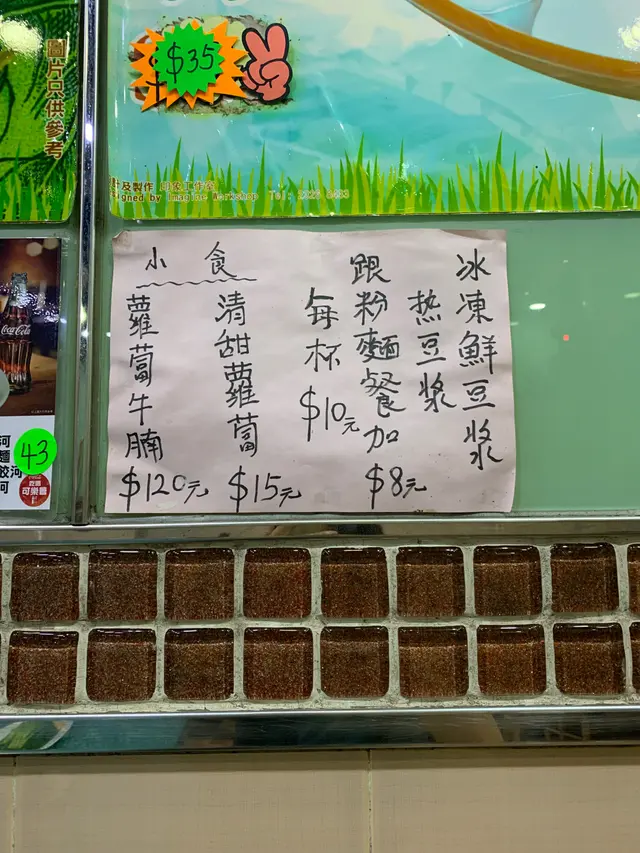 $35
圖片只供參考
計及製作 印象工作室
igned by Imagine Workshop Tel: 2
冰凍鮮豆漿
热豆漿
跟粉麵餐加
$8元
每杯
$10元
小食
清甜蘿蔔
$15元
蘿蔔牛腩
$120元
Coca-Cola
河
麵
餃河
河
43
可樂